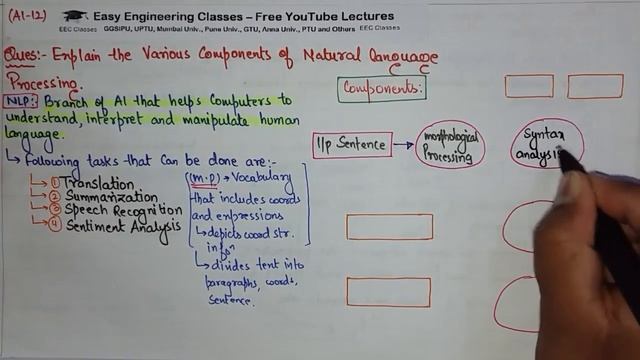 (AI-12)
Easy Engineering Classes – Free YouTube Lectures
EEC Classes GGSIPU, UPTU, Mumbai Univ., Pune Univ., GTU, Anna Univ., PTU and Others EEC Classes
Ques:- Explain the Various Components of Natural Language
Processing.
NLP: Branch of AI that helps Computers to
understand, interpret and manipulate human
language.
↳ Following tasks that can be done are:-
① Translation
② Summarization
③ Speech Recognition
④ Sentiment Analysis
(m.p) → Vocabulary
that includes words
and expressions
↳ depicts word str.
infoⁿ
↳ divides text into
paragraphs, words,
sentence.
Components:
I/p Sentence → morphological
Processing
Syntax
analysis